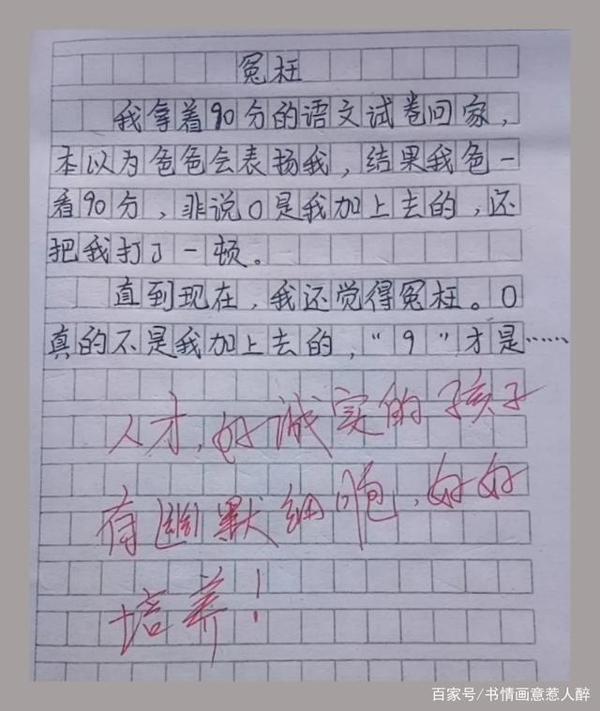 冤枉
我拿着90分的语文试卷回家，
本以为爸爸会表扬我，结果我爸一
看90分，非说0是我加上去的，还
把我打了一顿。
直到现在，我还觉得冤枉。0
真的不是我加上去的，“9”才是……
人才，好诚实的孩子
有幽默细胞，好好
培养！
百家号/书情画意惹人醉